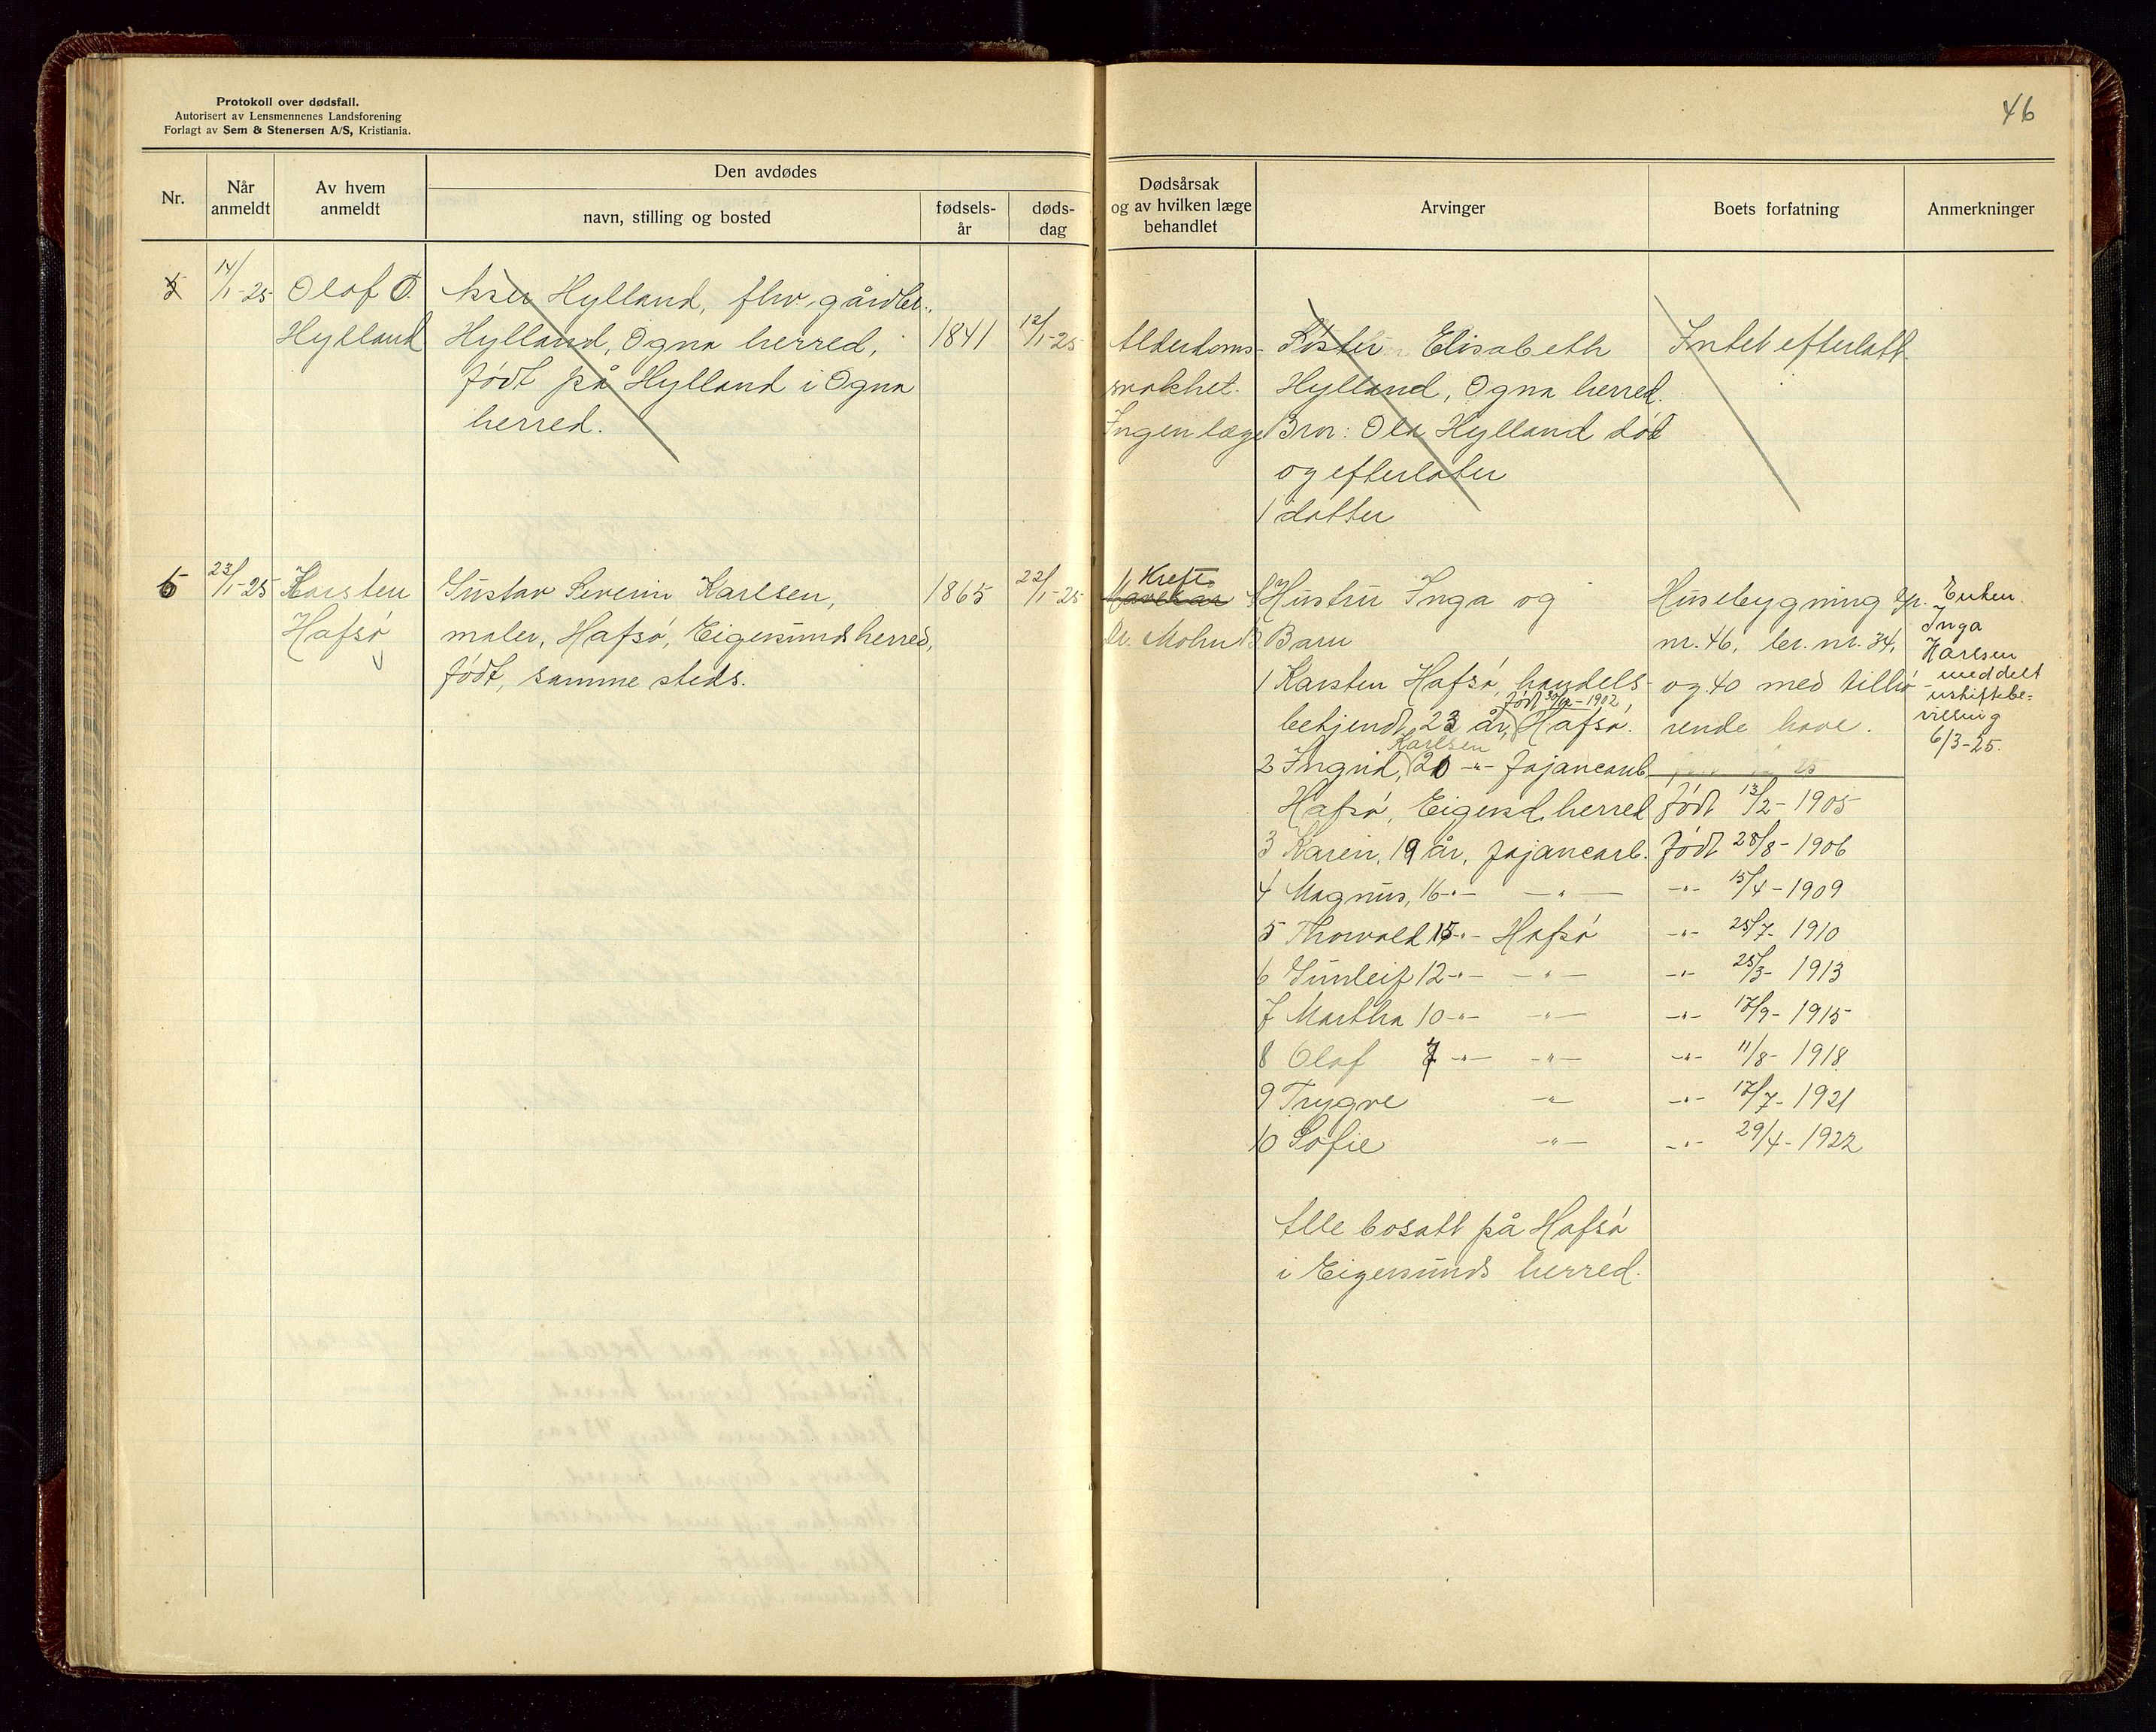 Protokoll over dødsfall.
Autorisert av Lensmennenes Landsforening
Forlagt av Sem & Stenersen A/S, Kristiania.
46
Nr.
Når anmeldt
Av hvem anmeldt
Den avdødes
navn, stilling og bosted
fødsels-år
døds-dag
Dødsårsak og av hvilken læge behandlet
Arvinger
Boets forfatning
Anmerkninger
5
14/1-25
Olaf O.
Hylland
Hylland, fhv. gårdbr.,
Hylland, Ogna herred,
født på Hylland i Ogna
herred.
1841
12/1-25
Alderdoms-
svakhet.
Ingen læge
Søster Elisabeth
Hylland, Ogna herred.
Bror: Ola Hylland død
og efterlater
1 datter
Intet efterlatt.
6
23/1-25
Karsten
Hafsø
Gustav Severin Karlsen,
maler, Hafsø, Eigersunds herred,
født, samme steds.
1865
22/1-25
Kreft.
Mavesår
Dr. Mohn
Hustru Inga og
Barn
1 Karsten Hafsø, handels-
født 30/12-1902,
betjendt, 23 år, Hafsø.
Karlsen
2 Ingrid, 20 -"- fajancearb.
Hafsø, Eigersd. herred
3 Karen, 19 år, fajancearb.
4 Magnus, 16 -"- -"-
5 Thorvald 15 -"- Hafsø
6 Gunleif 12 -"- -"-
7 Martha 10 -"- -"-
8 Olaf 7 -"- -"-
9 Trygve -"-
10 Sofie -"-
Alle bosatt på Hafsø
i Eigersunds herred.
Husebygning gr.
nr. 46, br. nr. 34,
og 40 med tilhø-
rende have.
født 13/2-1905
født 28/8-1906
-"- 15/4-1909
-"- 25/7-1910
-"- 25/3-1913
-"- 17/9-1915
-"- 11/8-1918
-"- 17/7-1921
-"- 29/4-1922
Enken.
Inga
Karlsen
meddelt
uskiftebe-
villing
6/3-25.